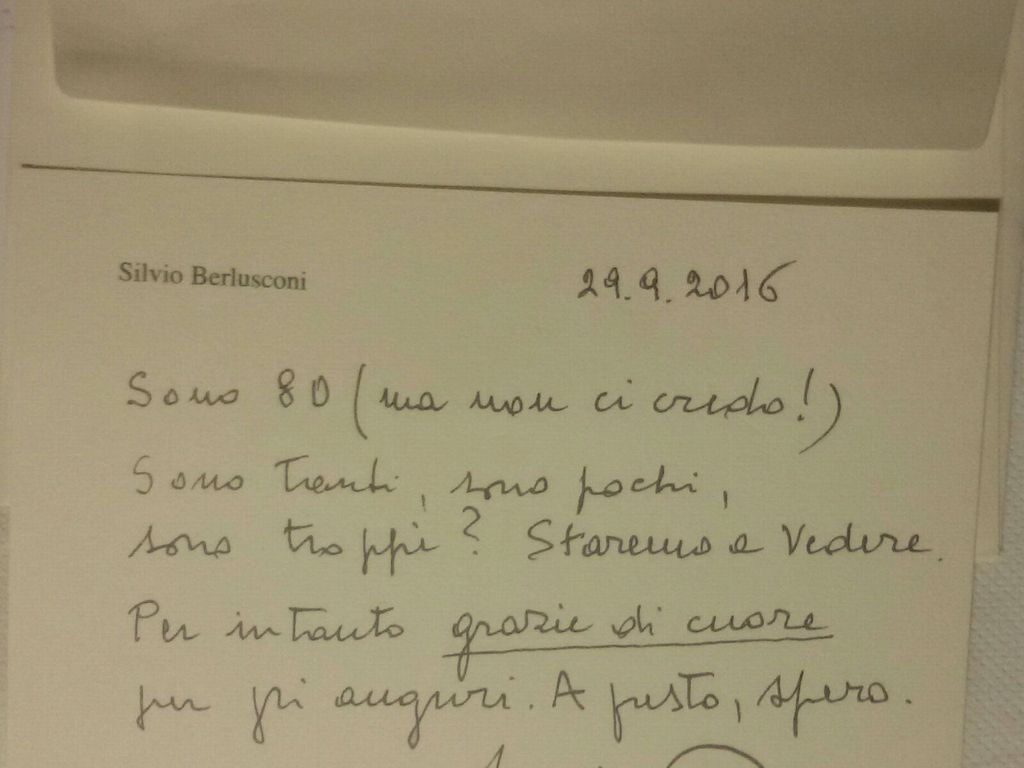 Silvio Berlusconi
29.9.2016
Sono 80 (ma non ci credo!)
Sono tanti, sono pochi,
sono troppi? Staremo a Vedere.
Per intanto grazie di cuore
per gli auguri. A presto, spero.